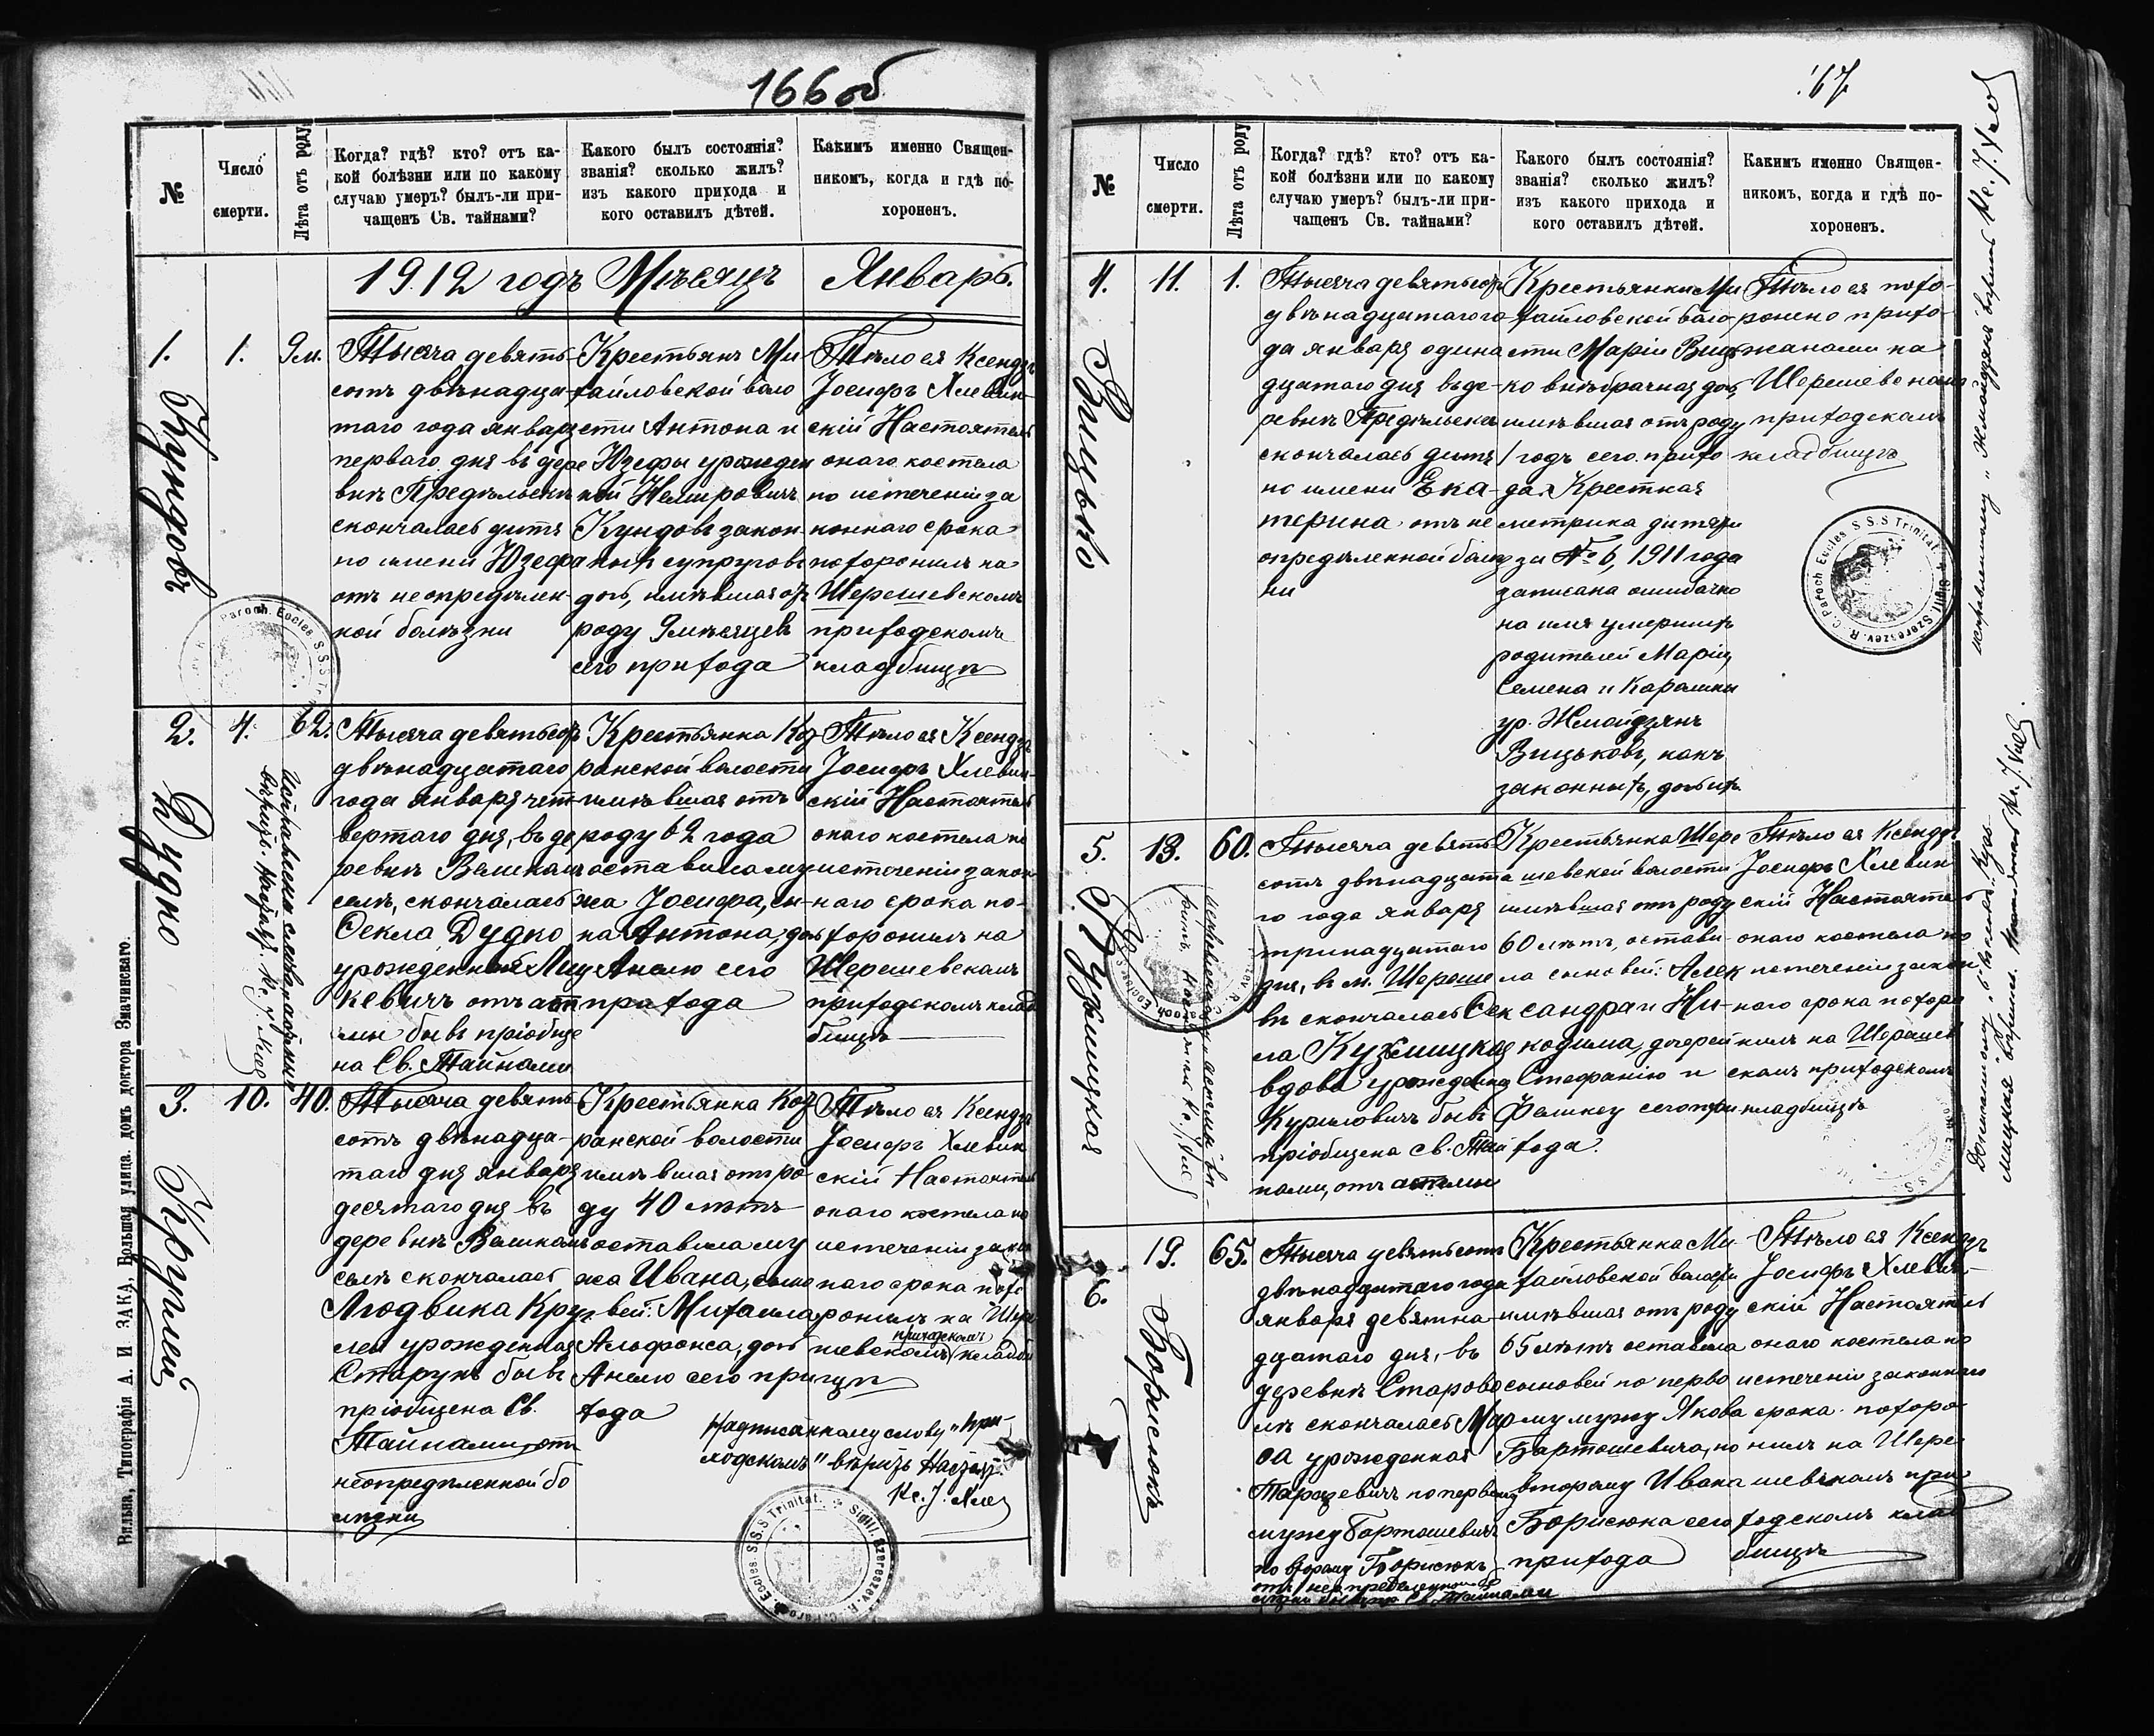 166 об
№
Число
смерти.
Лѣта отъ роду
Когда? гдѣ? кто? отъ ка-
кой болѣзни или по какому
случаю умеръ? былъ-ли при-
чащенъ Св. тайнами?
Какого былъ состоянія?
званія? сколько жилъ?
изъ какого прихода и
кого оставилъ дѣтей.
Какимъ именно Священ-
никомъ, когда и гдѣ по-
хороненъ.
1912 годъ Мѣсяцъ Январь.
1.
Кундовъ
1.
9 м.
Тысяча девять-
сотъ двѣнадца-
таго года января
перваго дня въ дере
внѣ Предѣльскѣ
скончалась дитя
по имени Юзефа
отъ неопредѣлен-
ной болѣзни
Крестьянъ Ми-
хайловской воло
сти Антона и
Юзефы урожден
ной Немировичъ
Кундовъ закон-
ныхъ супруговъ
дочь, имѣвшая отъ
роду 9 мѣсяцевъ
сего прихода
Тѣло ея Ксендзъ
Іосифъ Хлевин-
скій Настоятель
онаго костела
по истеченіи за
коннаго срока
похоронилъ на
Шерешевскомъ
приходскомъ
кладбищѣ
2.
Дудко
4.
62.
Исправленному слову
вѣритъ. Настоят. Кс. J. Хлев
Тысяча девятьсотъ
двѣнадцатаго
года января чет-
вертаго дня, въ де
ревнѣ Великомъ
селѣ, скончалась
Текла Дудко
урожденная Миц
кевичъ отъ аст
мы бывъ пріобще
на Св. Тайнами
Крестьянка Код
ранской волости
имѣвшая отъ
роду 62 года
оставила му
жа Іосифа, сы-
на Антона, дочь
Анелю сего
прихода
Тѣло ея Ксендзъ
Іосифъ Хлевин-
скій Настоятель
онаго костела по
истеченіи закон-
наго срока по-
хоронилъ на
Шерешевскомъ
приходскомъ клад
бищѣ
3.
Круглей
10.
40.
Тысяча девять-
сотъ двѣнадца-
таго дня января
десятаго дня въ
деревнѣ Великомъ
селѣ скончалась
Людвика Круг
лей урожденная
Старунь бывъ
пріобщена Св.
Тайнами, отъ
неопредѣленной бо
лѣзни
Крестьянка Код
ранской волости
имѣвшая отъ ро
ду 40 лѣтъ
оставила му
жа Ивана, сыно
вей: Михаила
Альфонса, дочь
Анелю сего при
хода
Тѣло ея Ксендзъ
Іосифъ Хлевин
скій Настоятель
онаго костела по
истеченіи закон
наго срока похо
ронилъ на Шере
приходскомъ
шевскомъ кладби
щѣ
Надписанному слову „при-
ходскомъ" вѣритъ Настоят.
Кс. J. Хлев
Вильна, Типографія А. И. ЗАКА, Большая улица. домъ доктора Змачинскаго.
R. C. Paroch. Eccles S.S.S Trinitat. Sigill. Szereszev.
167
№
Число
смерти.
Лѣта отъ роду
Когда? гдѣ? кто? отъ ка-
кой болѣзни или по какому
случаю умеръ? былъ-ли при-
чащенъ Св. тайнами?
Какого былъ состоянія?
званія? сколько жилъ?
изъ какого прихода и
кого оставилъ дѣтей.
Какимъ именно Священ-
никомъ, когда и гдѣ по-
хороненъ.
4.
Вицько
11.
1.
Тысяча девятьсотъ
двѣнадцатаго го
да января одина
дцатаго дня въ де-
ревнѣ Предѣльскѣ
скончалась дитя
по имени Ека-
терина отъ не
опредѣленной болѣз
ни
Крестьянки Ми
хайловской воло
сти Маріи Виць
ко внѣбрачная дочь,
имѣвшая отъ роду
1 годъ сего прихо
да. Крестная
метрика дитяти
за № 6, 1911 года
записана ошибочно
на имя умершихъ
родителей Маріи,
Семена и Каролины
ур. Жмойдзянъ
Вицьковъ, какъ
законныхъ, дочь ихъ.
Тѣло ея похо-
ронено прихо-
жанами на
Шерешевскомъ
приходскомъ
кладбищѣ
R. C. Paroch Eccles S.S.S Trinitat. Sigill. Szereszev.
исправленному „Жмойдзянъ" вѣритъ Кс. J. Хлев
5.
Кузьмицкая
13.
60.
Тысяча девять-
сотъ двѣнадцата
го года января
тринадцатаго
дня, въ м. Шереше
вѣ скончалась Фек
ла Кузьмицкая
вдова урожденная
Куриловичъ бывъ
пріобщена Св. Тай
нами, отъ астмы
Крестьянка Шере
шевской волости
имѣвшая отъ роду
60 лѣтъ, остави-
ла сыновей: Алек
сандра и Ни-
кодима, дочерей
Стефанію и
Феликсу сего при
хода.
Тѣло ея Ксендзъ
Іосифъ Хлевин
скій Настоятель
онаго костела по
истеченіи закон
наго срока похоро
нилъ на Шерешев
скомъ приходскомъ
кладбищѣ
6.
Борисюкъ
19.
65.
Тысяча девятьсотъ
двѣнадцатаго года
января девятна-
дцатаго дня, въ
деревнѣ Старово
лѣ скончалась
урожденная
Тарасевичъ по первому
мужу Бартошевичъ
по второму Борисюкъ
отъ неопредѣленной бо
лѣзни Св. Тайнами
Крестьянка Ми
хайловской волости
имѣвшая отъ роду
65 лѣтъ оставила
сыновей по перво
му мужу Якова
Бартошевича, по
второму Ивана
Борисюка сего
прихода
Тѣло ея Ксендзъ
Іосифъ Хлевин-
скій Настоятель
онаго костела по
истеченіи законнаго
срока похоро
нилъ на Шере
шевскомъ при
ходскомъ клад
бищѣ